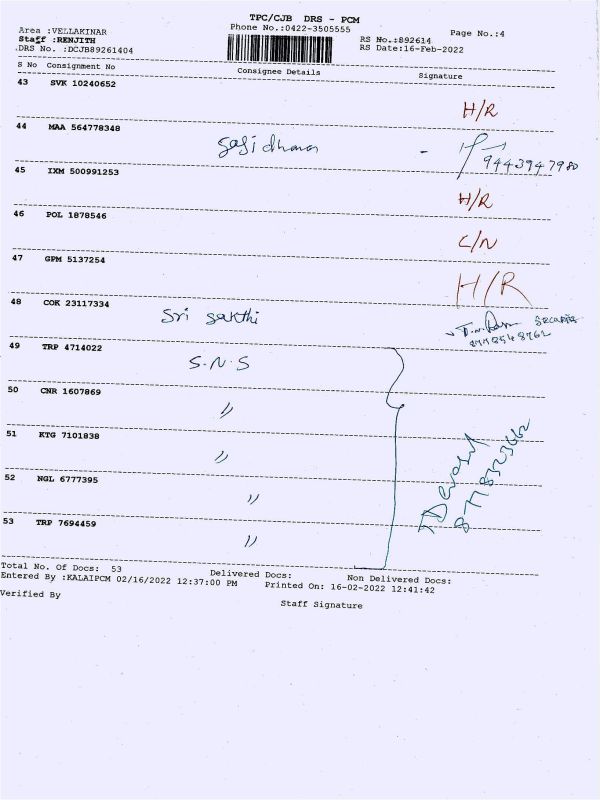 TPC/CJB DRS - PCM
Area :VELLAKINAR Phone No.:0422-3505555 Page No.:4
Staff :RENJITH RS No.:892614
DRS No. :DCJB89261404 RS Date:16-Feb-2022
S No Consignment No Consignee Details Signature
43 SVK 10240652
H/R
44 MAA 564778348
Sasidharan - 9443947980
45 IXM 500991253
H/R
46 POL 1878546
C/N
47 GPM 5137254
H/R
48 COK 23117334
Sri Sakthi Security
49 TRP 4714022
S.N.S
50 CNR 1607869
"
51 KTG 7101838
"
52 NGL 6777395
"
53 TRP 7694459
"
8778323662
Total No. Of Docs: 53 Delivered Docs: Non Delivered Docs:
Entered By :KALAIPCM 02/16/2022 12:37:00 PM Printed On: 16-02-2022 12:41:42
Verified By Staff Signature